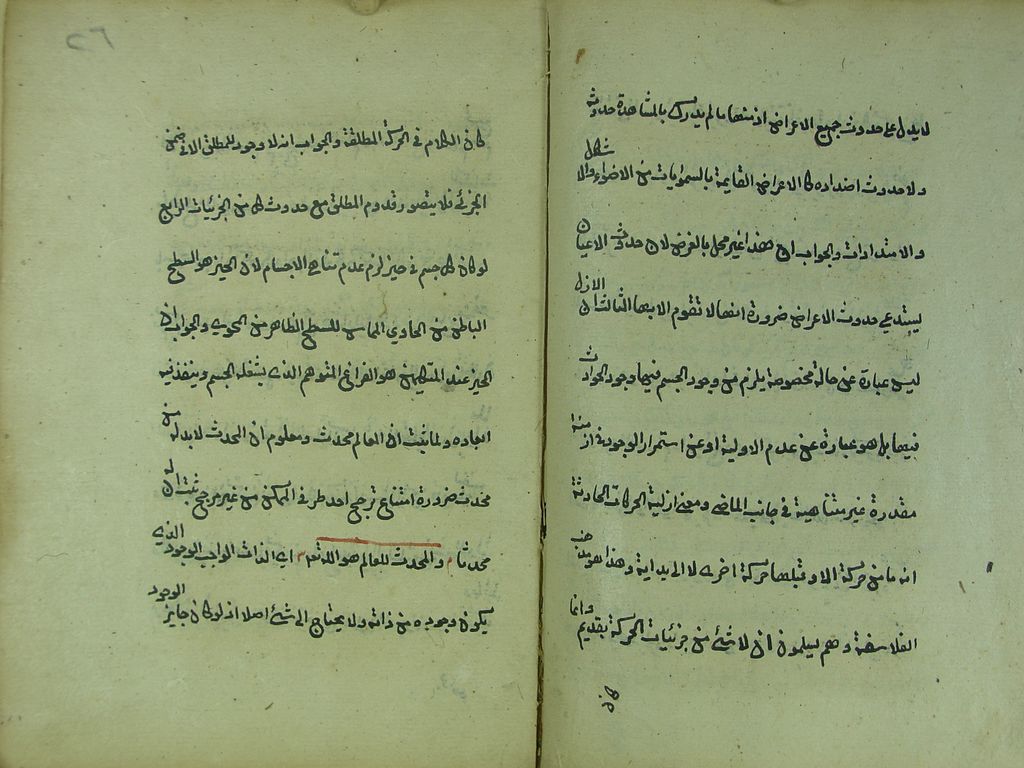 لا يدل على حدوث جميع الاعراض اذ منها ما لم يدرك بالمشاهدة حدوثه
ولا حدوث اضداده كالاعراض القايمة بالسمويات من الاضواء والاشكال
والامتدادات والجواب ان هذا غير مخل بالغرض لان حدوث الاعيان
يستدعي حدوث الاعراض ضرورة انها لا تقوم الا بها الثالث ان الازل
ليس عبارة عن حالة مخصوصة يلزم من وجود الجسم فيها وجود الحوادث
فيها بل هو عبارة عن عدم الاولية او عن استمرار الوجود في ازمنة
مقدرة غير متناهية في جانب الماضى ومعنى ازلية الحركات الحادثة
انه ما من حركة الا وقبلها حركة اخرى لا الى بداية وهذا هو مذهب
الفلاسفة وهم يسلمون ان لا شئ من جزئيات الحركة بقديم وانما
كان
٤٦
كان الكلام في الحركة المطلقة والجواب انه لا وجود للمطلق الا في ضمن
الجزئي فلا يتصور قدوم المطلق مع حدوث كل من الجزئيات الرابع
لو كان كل جسم في حيز لزم عدم تناهي الاجسام لان الحيز هو السطح
الباطن من الحاوي المماس للسطح الظاهر من المحوي والجواب ان
الحيز عند المتكلمين هو الفراغ المتوهم الذي يشغله الجسم وينفذ فيه
ابعاده ولما ثبت ان العالم محدث ومعلوم ان المحدث لا بد له من
محدث ضرورة امتناع ترجح احد طرفي الممكن من غير مرجح ثبت ان له
محدثا م والمحدث للعالم هو الله تعم اي الذات الواجب الوجود الذي
يكون وجوده من ذاته ولا يحتاج الى شئ اصلا اذ لو كان جايز الوجود